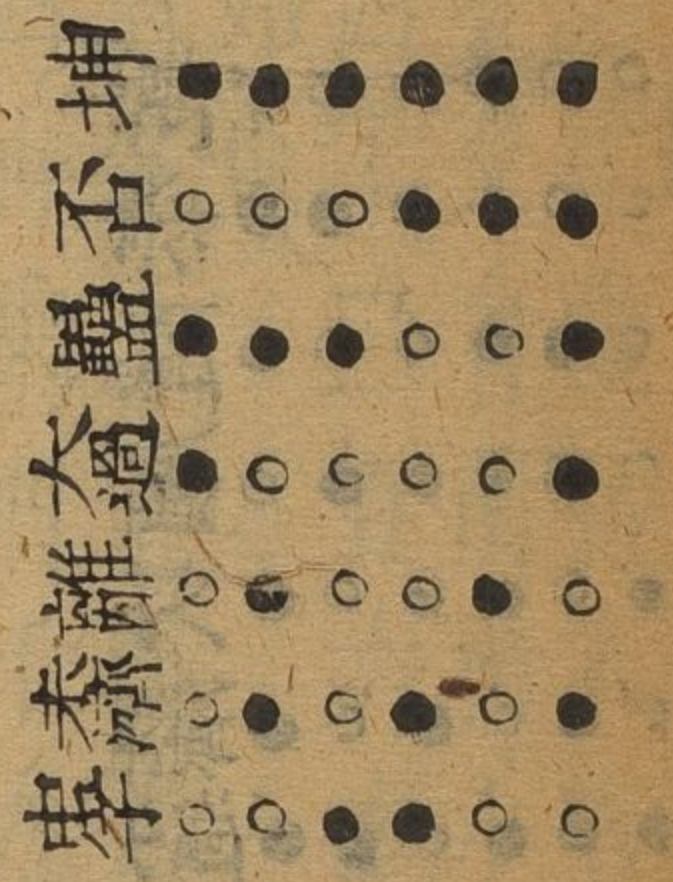 坤
否
蠱
大過
離
未濟
中孚